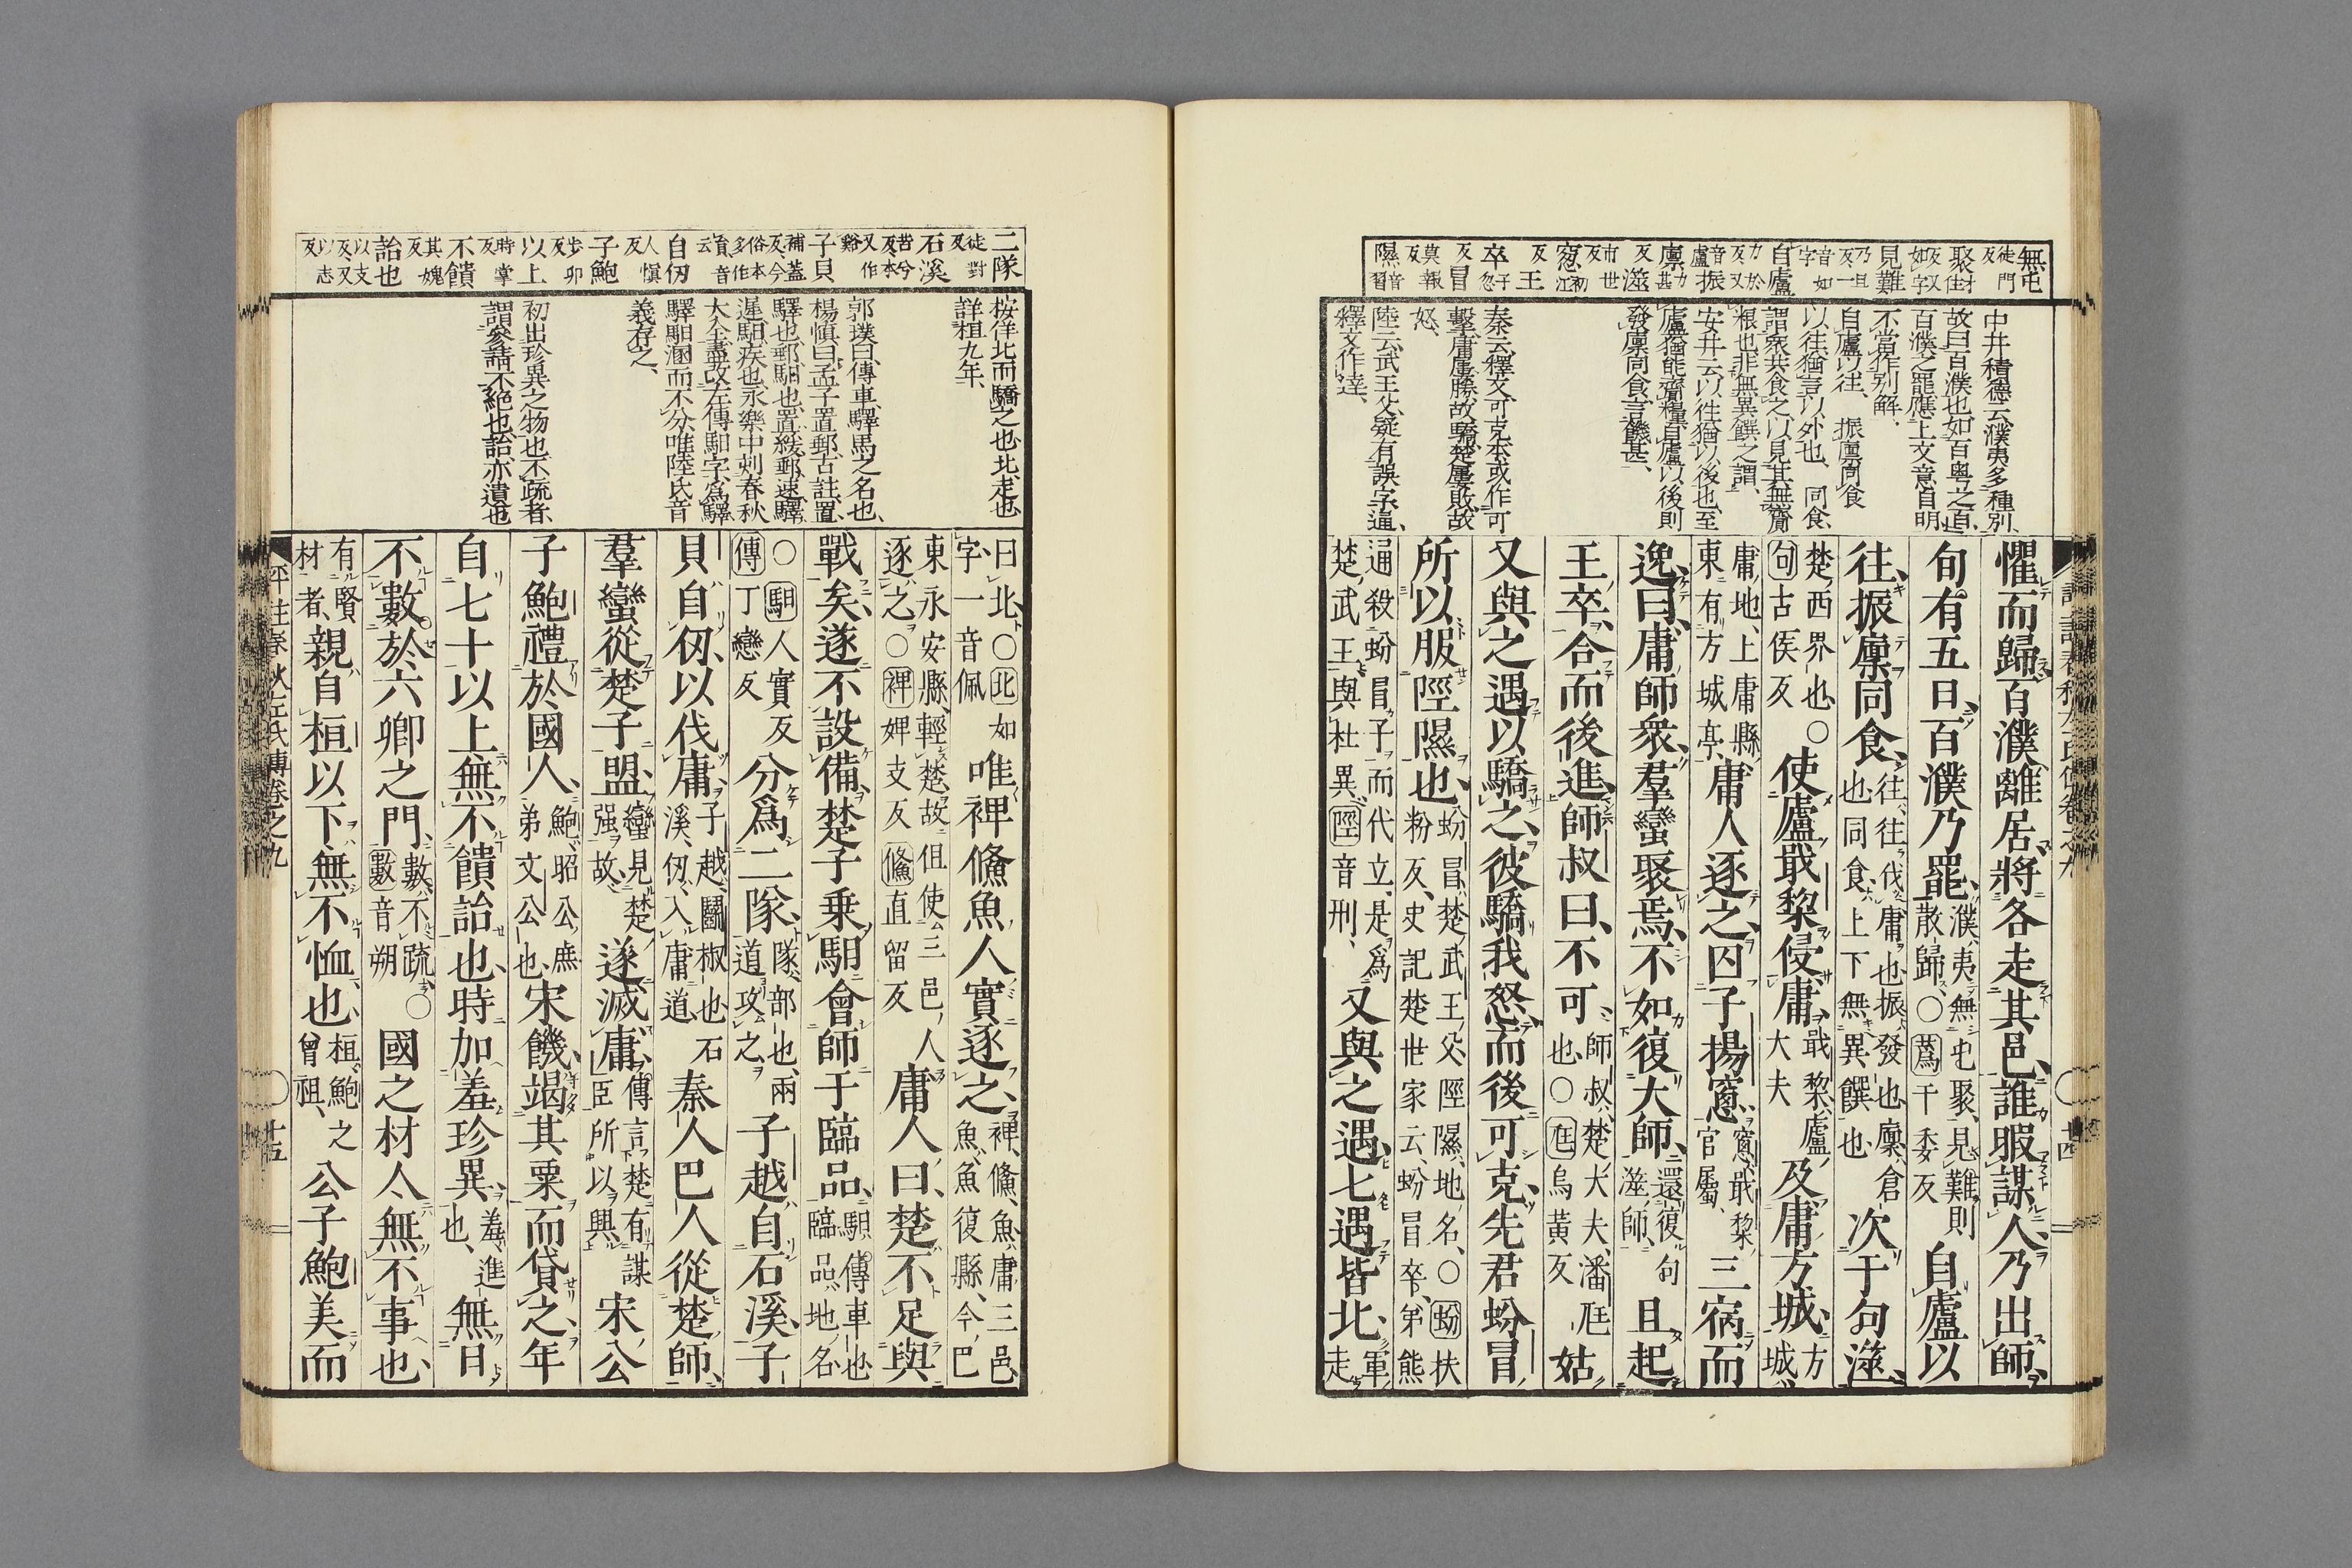 無屯徒門反
聚住財反又如字
見難乃旦反一音如字
自盧力於反又音盧
振廩力甚反
澨市世反
窻初江反
王卒子忽反
冒莫報反
隰音習
中井積德云濮夷多種別
故曰百濮也如百粤之百
百濮之罷應上文意自明
不當作別解
自廬以往 振廩同食
以往猶言以外也 同食
謂衆共食之以見其無齎
粮也非無異饌之謂
安井云以往猶以後也至
廬猶能齎糧自廬以後則
發廩同食言饑甚
秦云釋文可克本或作可
擊庸屢勝故驕楚屢敗故
怒
陸云武王父疑有誤字逼
釋文作達
懼而歸百濮離居將各走其邑誰暇謀人乃出師
旬有五日百濮乃罷濮夷無屯聚見難則散歸〇蔿千委反自廬以
往振廩同食往往伐庸也振發也廩倉也同食上下無異饌也次于句澨
楚西界也〇句古侯反使廬戢黎侵庸戢黎廬大夫及庸方城方城
庸地上庸縣東有方城亭庸人逐之囚子揚窻窻戢黎官屬三宿而
逸曰庸師衆羣蠻聚焉不如復大師還復句澨師且起
王卒合而後進師叔曰不可師叔楚大夫潘尫也〇尫烏黃反姑
又與之遇以驕之彼驕我怒而後可克先君蚡冒
所以服陘隰也蚡冒楚武王父陘隰地名〇蚡扶粉反史記楚世家云蚡冒卒弟熊
通殺蚡冒子而代立是爲楚武王與杜異陘音刑又與之遇七遇皆北軍走
評註春秋左氏傳卷之九
十四
二隊徒對反
石溪苦兮反本又作谿
子貝補蓋反今俗本多作員音云
自仞人愼反
子鮑步卯反
以上時掌反
不饋其媿反
詒也以支反又以志反
按佯北而驕之也北走也
詳桓九年
郭璞曰傳車驛馬之名也
楊愼曰孟子置郵古註置
驛也郵馹也置緩郵速驛
遲馹疾也永樂中刻春秋
大全盡改左傳馹字爲驛
驛馹溷而不分唯陸氏音
義存之
初出珍異之物也不疏者
謂參請不絶也詒亦遺也
曰北〇北如字一音佩唯裨鯈魚人實逐之裨鯈魚庸三邑魚魚復縣今巴
東永安縣輕楚故但使三邑人逐之〇裨婢支反鯈直留反庸人曰楚不足與
戰矣遂不設備楚子乘馹會師于臨品馹傳車也臨品地名
〇馹人實反傳丁戀反分爲二隊隊部也兩道攻之子越自石溪子
貝自仞以伐庸子越鬭椒也石溪仞入庸道秦人巴人從楚師
羣蠻從楚子盟蠻見楚强故遂滅庸傳言楚有謀臣所以興宋公
子鮑禮於國人鮑昭公庶弟文公也宋饑竭其粟而貸之年
自七十以上無不饋詒也時加羞珍異羞進也無日
不數於六卿之門數不疏〇數音朔國之材人無不事也
有賢材者親自桓以下無不恤也桓鮑之曾祖公子鮑美而
評註春秋左氏傳卷之九
十五